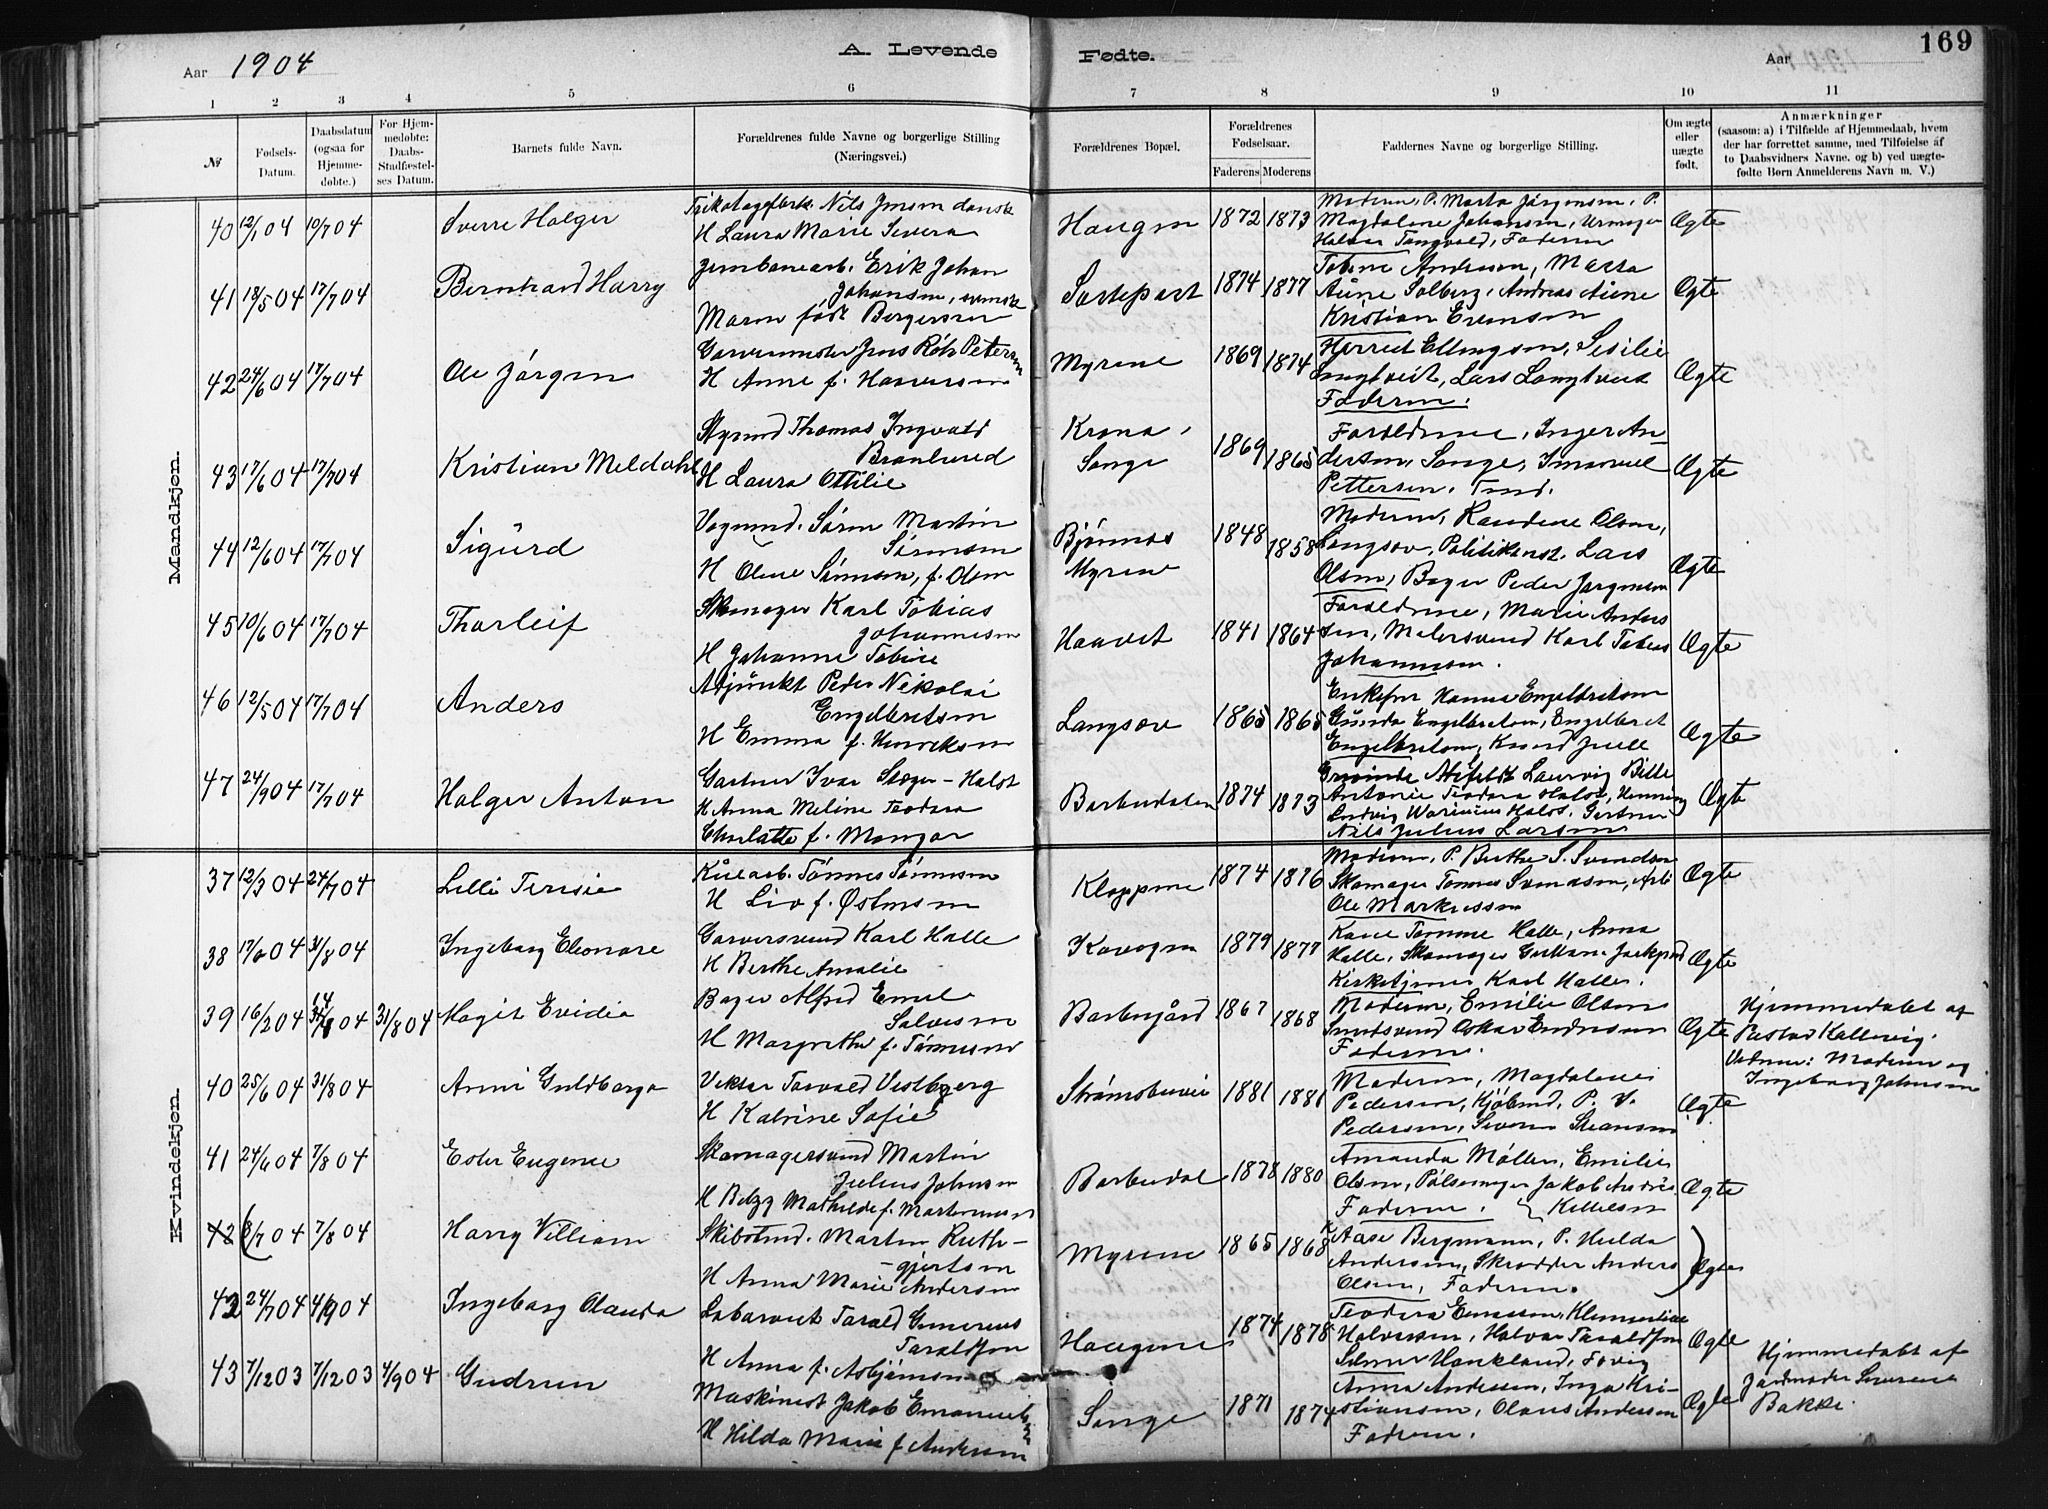 169
Aar 1904
A. Levende Fødte.
Aar
1 2 3 4 5 6 7 8 9 10 11
№
Fødsels-Datum.
Daabsdatum (ogsaa for Hjemmedøbte.)
For Hjemmedøbte: Daabs-Stadfæstelses Datum.
Barnets fulde Navn.
Forældrenes fulde Navne og borgerlige Stilling (Næringsvei.)
Forældrenes Bopæl.
Forældrenes Fødselsaar.
Faderens Moderens
Faddernes Navne og borgerlige Stilling.
Om ægte eller uægte født.
Anmærkninger
(saasom: a) i Tilfælde af Hjemmedaab, hvem der har forrettet samme, med Tilføielse af to Daabsvidners Navne. og b) ved uægte-fødte Børn Anmelderens Navn m. V.)
Mandkjøn.
40 12/1 04 10/7 04 Sverre Holger
Nils Jensen dansk
H Laura Marie Severa
Haugen 1872 1873
Modren, P. Marta Jørgensen, P.
Magdalene Johansen, Urmager
Halvor Tangvald, Faderen
Ægte
41 18/5 04 17/7 04 Bernhard Harry
Jernbanearb. Erik Johan
Johansen, svensk
Maren født Bergersen
1874 1877
Tobine Andersen, Marta
Aune Solberg, Andreas Aune
Kristian Evensen
Ægte
42 24/6 04 17/7 04 Ole Jørgen
Garvermester Jens Petersen
H Anne f. Halvorsen
Myrene 1869 1874
Ellingsen, Sesilie
Langtveit, Lars Langtveit
Faderen.
Ægte
43 17/6 04 17/7 04 Kristian Meldahl
Styrmd Thomas Ingvald
H Laura Ottilie
Krona,
Songe
1869 1865
Forældrene, Inger An-
dersen, Songe, Imanuel
Pettersen. Tmd.
Ægte
44 12/6 04 17/7 04 Sigurd
Vognmd. Søren Martin
Sørensen
H Oline Sørensen, f. Olsen
Bjønnes
Myrene
1848 1858
Modren, Olsen,
Langsæv, Politikonst. Lars
Olsen, Bager Peder Jørgensen
Ægte
45 10/6 04 17/7 04 Thorleif
Skomager Karl Tobias
Johannesen
H Johanne Tobine
Haavet 1841 1864
Forældrene, Marie Anders
sen, Malersvend Karl Tobias
Johannesen.
Ægte
46 12/5 04 17/7 04 Anders
Adjunkt Peder Nikolai
Engelbretsen
H Emma f. Henriksen
Langsæv 1865 1865
Enkefru Hanna Engelbretsen
Gunda Engelbretsen, Engelbret
Engelbretsen, Knud Juell
Ægte
47 24/9 04 17/7 04 Holger Anton
Gartner Ivar Steger-Holst
H Anna Meline Teodora
Charlotte f. Mangor
Barbudalen 1874 1873
Grevinde Ahlefeldt Laurvig Bille
Antonie Teodora Holst, Henning
Ludvig Holst, Gartner
Nils Julius Larsen
Ægte
Kvindekjøn.
37 12/3 04 24/7 04 Lilli Terisie
Tønnes Tønnesen
H Liv f. Østensen
Kloppene 1874 1876
Modren, P. Berthe S. Svendsen
Skomager Tønnes Svendsen, Arb
Ole Markussen
Ægte
38 17/6 04 31/8 04 Ingeborg Eleonore
Garversvend Karl Halle
H Berthe Amalie
1879 1877
Karie Tomine Halle, Anna
Halle, Skomager
Kirketjener Karl Halle.
Ægte
39 16/2 04 04 31/8 04 Magit Evidia
Bager Alfred Emil
Salvesen
H Margrethe f. Tønnesend
Barbugård 1867 1868
Modren, Emilie Olsen
Smedsvend Oskar Endresen
Faderen.
Ægte
Hjemmedøbt af
Pastor Kallevig.
Vidner: Moderen og
Ingeborg Johnsen
40 25/6 04 31/8 04 Anni Guldborga
Viktor Torvald Vestberg
H Katrine Sofie
Strømsbuvei 1881 1881
Moderen, Magdalene
Pedersen, Kjøbmd. P. V.
Pedersen, Severin
Ægte
41 24/6 04 7/8 04 Ester Eugenie
Skomagersvend Martin
Julius Johnsen
H Betzy Mathilde f. Martinsen
Barbudal 1878 1880
Amanda Møller, Emilie
Olsen, Pølsemager Jakob Andrēs
Faderen. Killesen
Ægte
42 8/7 04 7/8 04 Harry Villiam
Skibstmd. Martin Ruth-
gjertsen
H Anna Marie Andersen
Myrene 1865 1868
Aase Bergmann, P. Hulda
Andersen, Skrædder Anders
Olsen, Faderen.
Ægte
42 24/7 04 4/9 04 Ingeborg Olauda
Tarald Gunerius
Taraldsen
H Anna f. Asbjørnsen
Haugene 1874 1878
Teodora Evensen, Klementine
Halvorsen, Halvor Taraldsen
Hankland,
Ægte
43 7/12 03 7/12 03 4/9 04 Gudrun
Maskinist Jakob Emanuelsen
H Hilda Marie f. Andersen
Songe 1871 1874
Anna Andersen, Inga Kri-
stiansen, Olaus Andersen
Faderen.
Ægte
Hjemmedøbt af
Jordmoder Severine
Bakke.